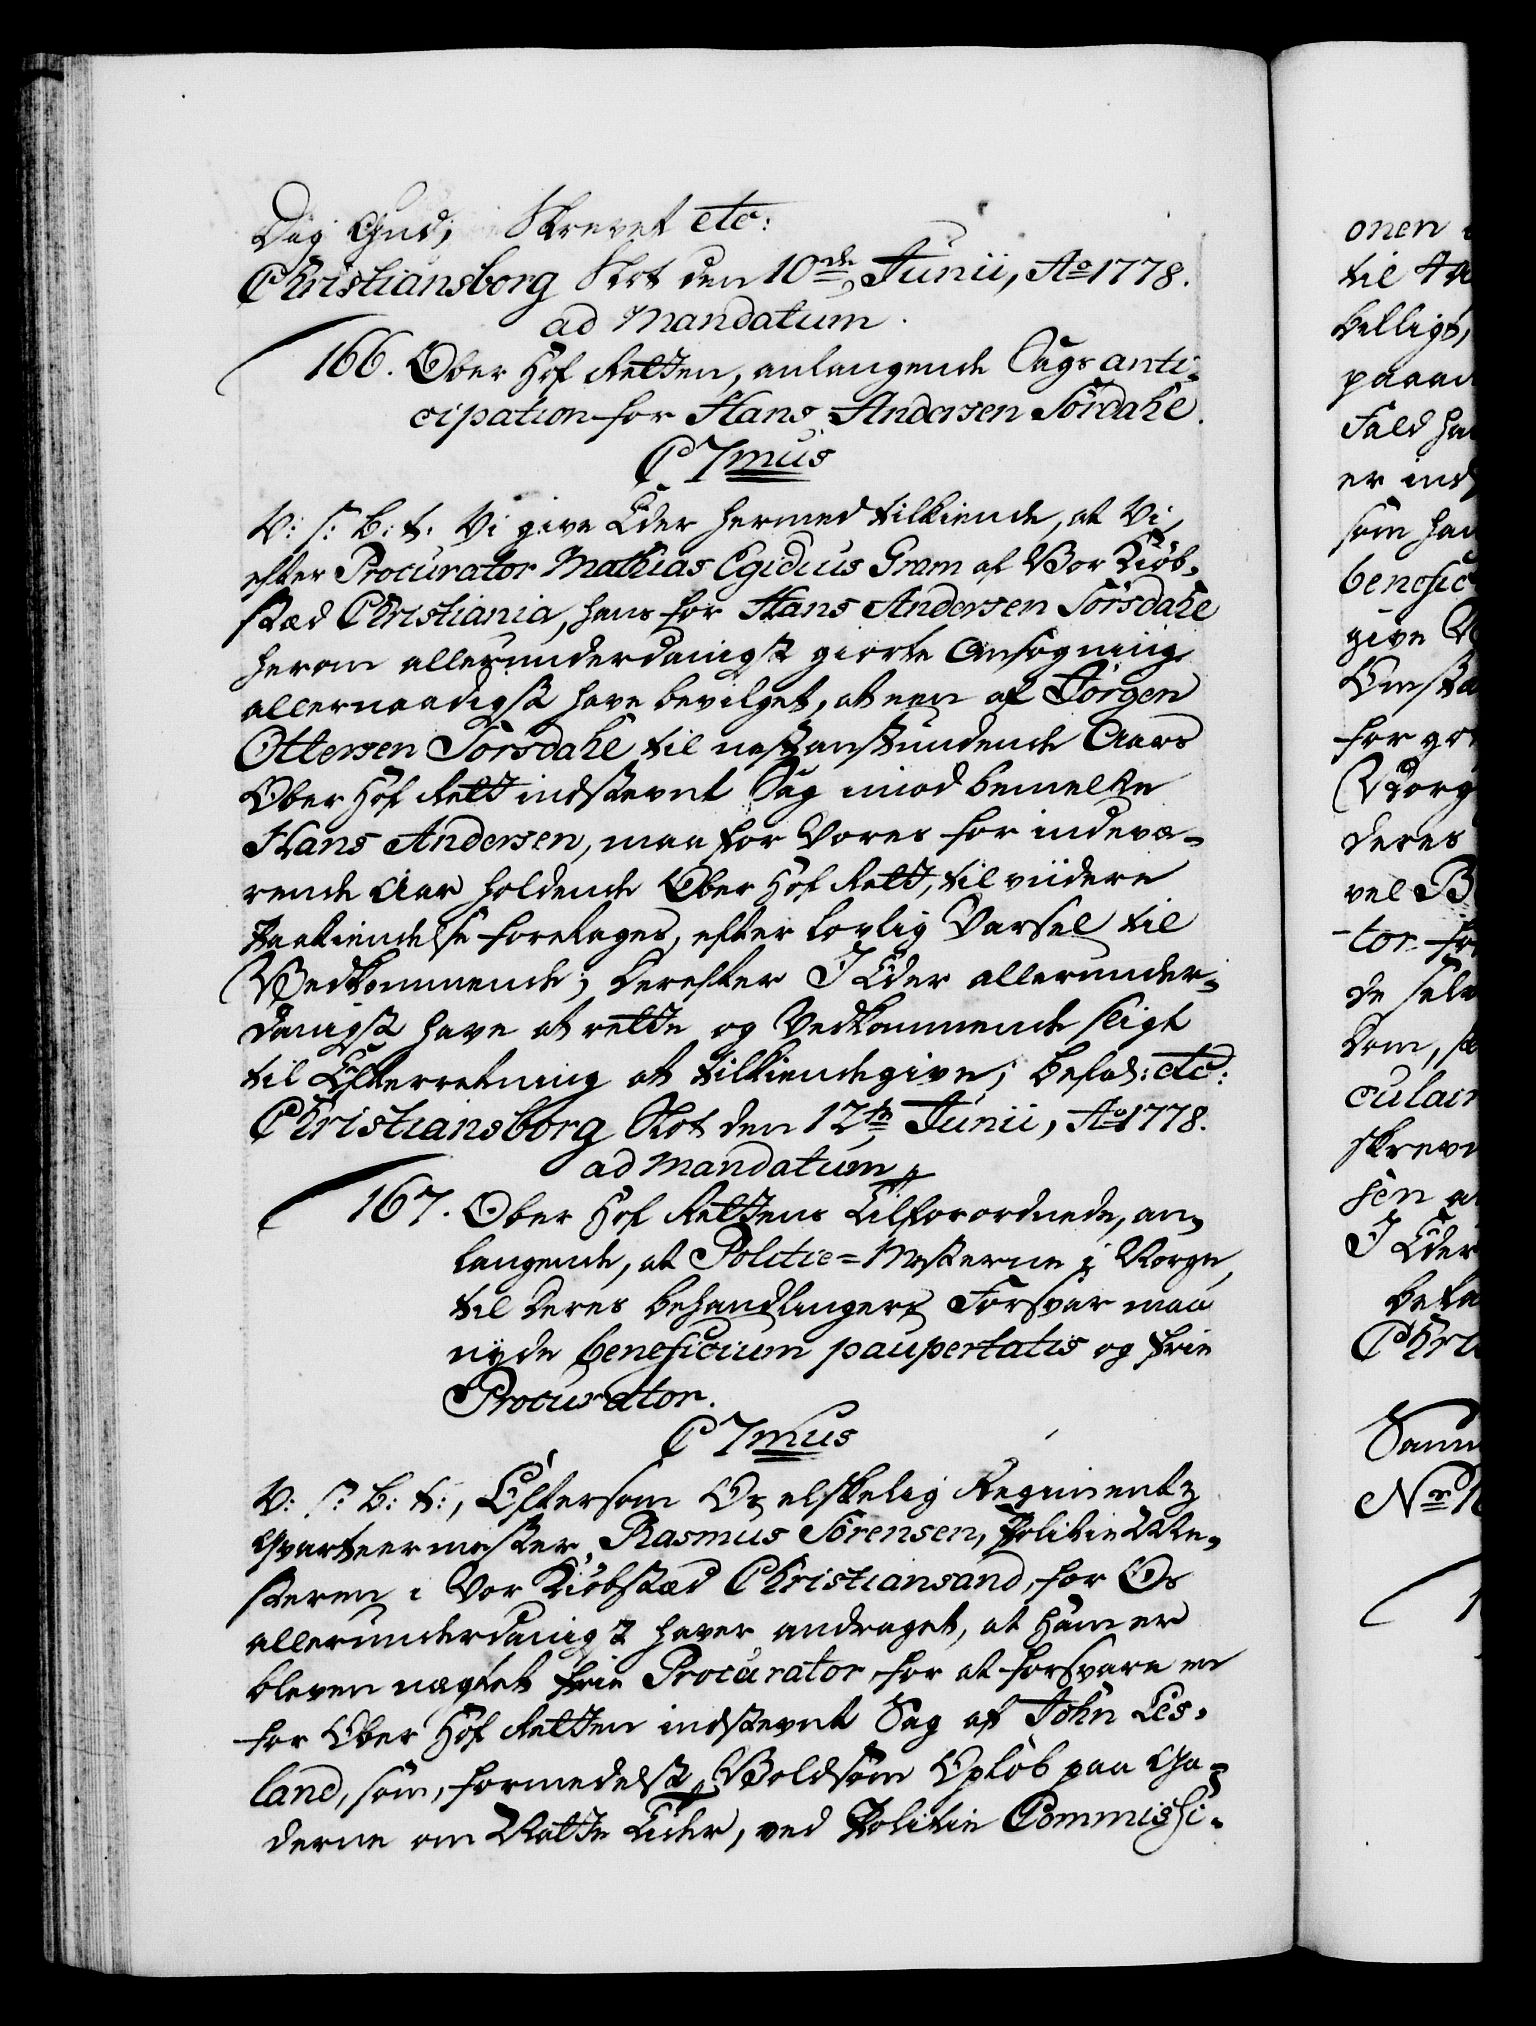 Dig Gud; Skrevet etc:
Christiansborg Slot den 10de Junii, Ao 1778.
ad Mandatum.
166. Ober Hof Retten, anlangende Sags anti-
cipation for Hans Andersen Sørsdahl.
C 7mus
V: S: B: t: Vi give Eder hermed tilkiende, at Vi,
efter Procurator Mathias Egidius Gram af Vor Kiøb-
stæd Christiania, hans for Hans Andersen Sørsdahl
herom allerunderdanigst giorte Ansøgning
allernaadigst have bevilget, at een af Jørgen
Ottersen Sørsdahl til nestanstundende Aars
Ober Hof Rett indstevnt Sag imod bemelte
Hans Andersen, maa for Vores for indevæ-
rende Aar holdende Ober Hof Rett, til viidere
Paakiendelse foretages, efter lovlig Varsel til
Vedkommende; derefter I Eder allerunder-
danigst have at rette og Vedkommende sligt
til Efterretning at tilkiendegive; befal: etc:
Christiansborg Slot den 12te Junii, Ao 1778.
ad Mandatum
167. Ober Hof Rettens Tilforordnede, an-
langende, at Politie=Mesterne i Norge,
til deres behandlingers Forsvar maa
nyde beneficium paupertatis og frie
Procurator.
C 7mus
V: S: B: t:, Eftersom Os elskelig Regiments
Qvarteermester Rasmus Sørensen, Politie Me-
steren i Vor Kiøbstæd Christiansand, for Os
allerunderdanigst haver andraget, at ham er
bleven nægtet frie Procurator for at forsvare en
for Ober Hof Retten indstevnt Sag af John Les-
land, som, formedelst Voldsom Opløb paa Ga-
derne om Natte Tider, ved Politie Commissi-
onen
til
billigt,
paa
Fald
er ind
som
benefic
give
Omsta
for
Norg
deres
vel
tor
de selv
dom,
culair
skreve
sen
I Eder
Chri